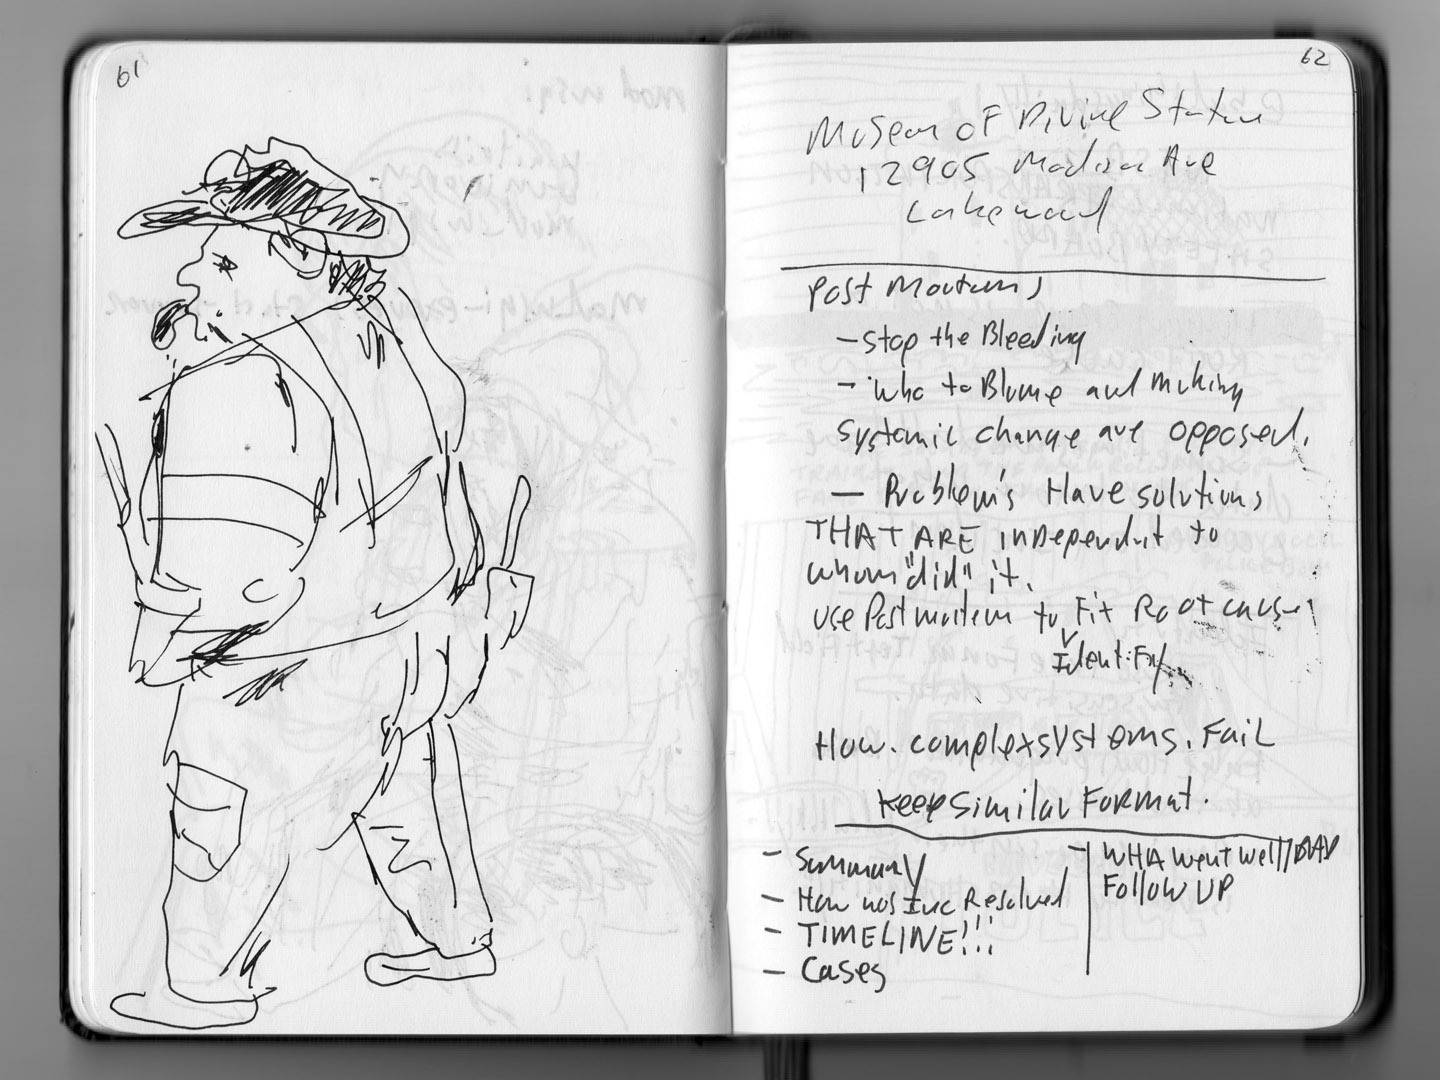 61
62
Museum of Divine Statue
12905 Madison Ave
Lakewood
Post Mortums
- Stop the Bleeding
- Who to Blame and making
systemic change are opposed.
- Problem's Have solutions
THAT ARE independent to
whom "did" it.
use Postmortem to Fit Root cause
Identify
How. complex systems. Fail
keep similar Format.
- Summary
- How was Inc Resolved
- TIMELINE!!!
- Cases
- WHA went well//BAD
Follow UP